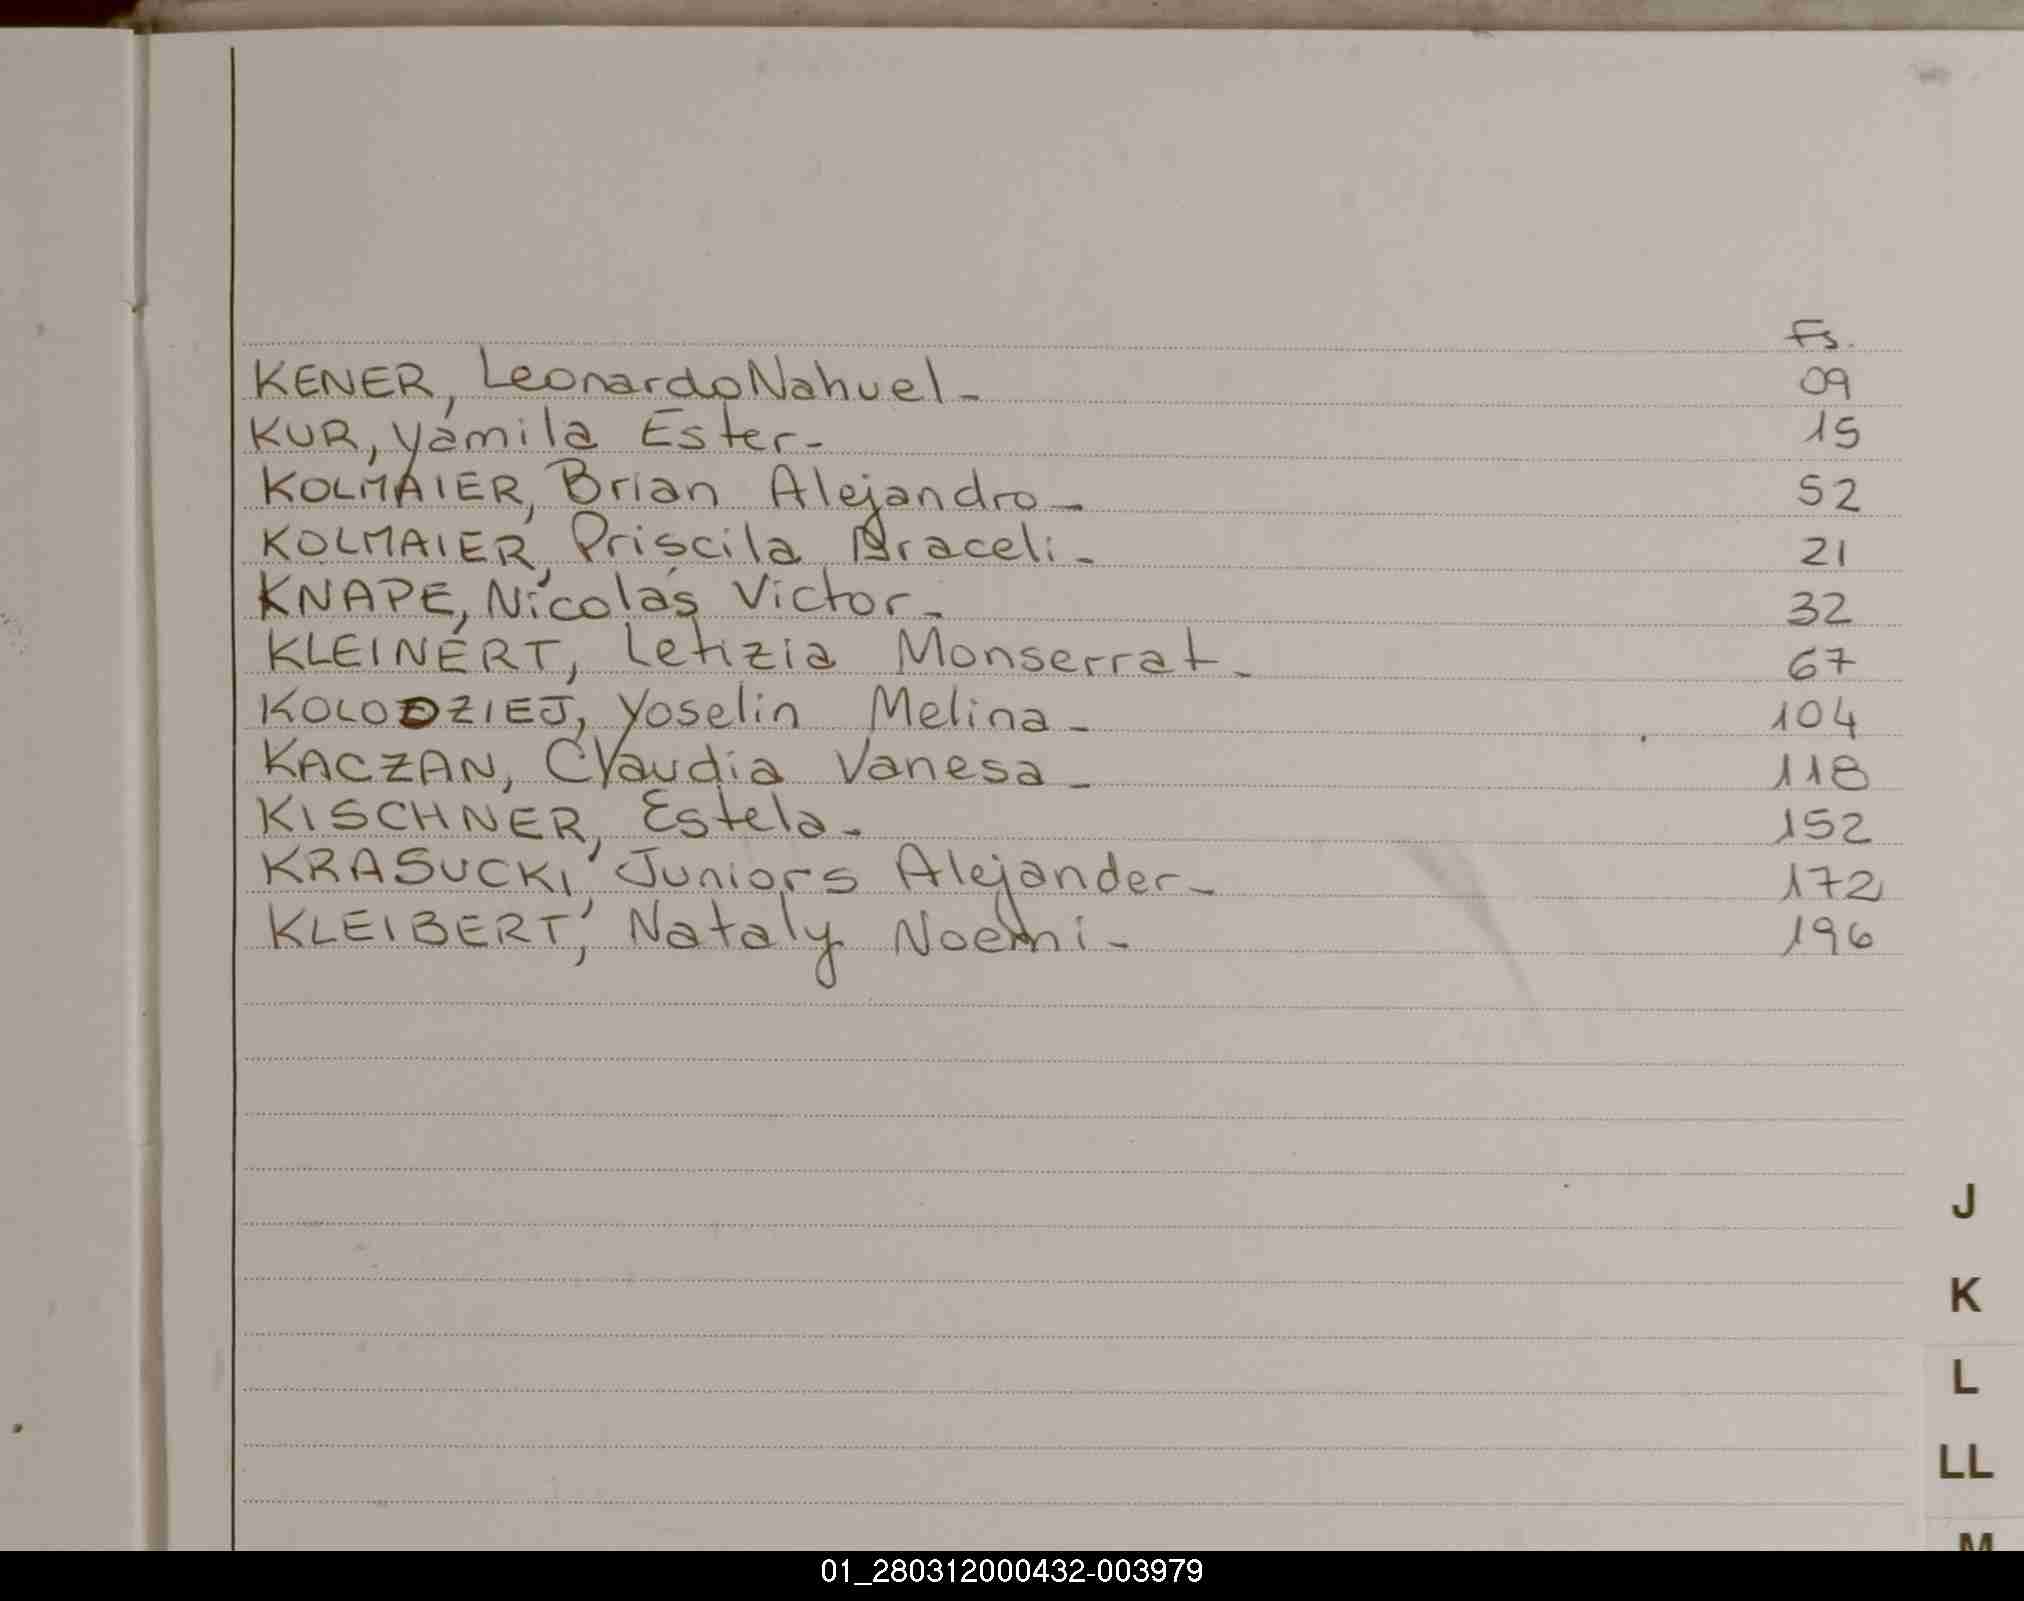 Fs.
KENER, Leonardo Nahuel - 09
KUR, Yamila Ester - 15
KOLMAIER, Brian Alejandro - 52
KOLMAIER, Priscila Araceli - 21
KNAPE, Nicolás Victor - 32
KLEINERT, Letizia Monserrat - 67
KOLODZIEJ, Yoselin Melina - 104
KACZAN, Claudia Vanesa - 118
KISCHNER, Estela - 152
KRASUCKI, Juniors Alejander - 172
KLEIBERT, Nataly Noemi - 196
J
K
L
LL
M
01_280312000432-003979